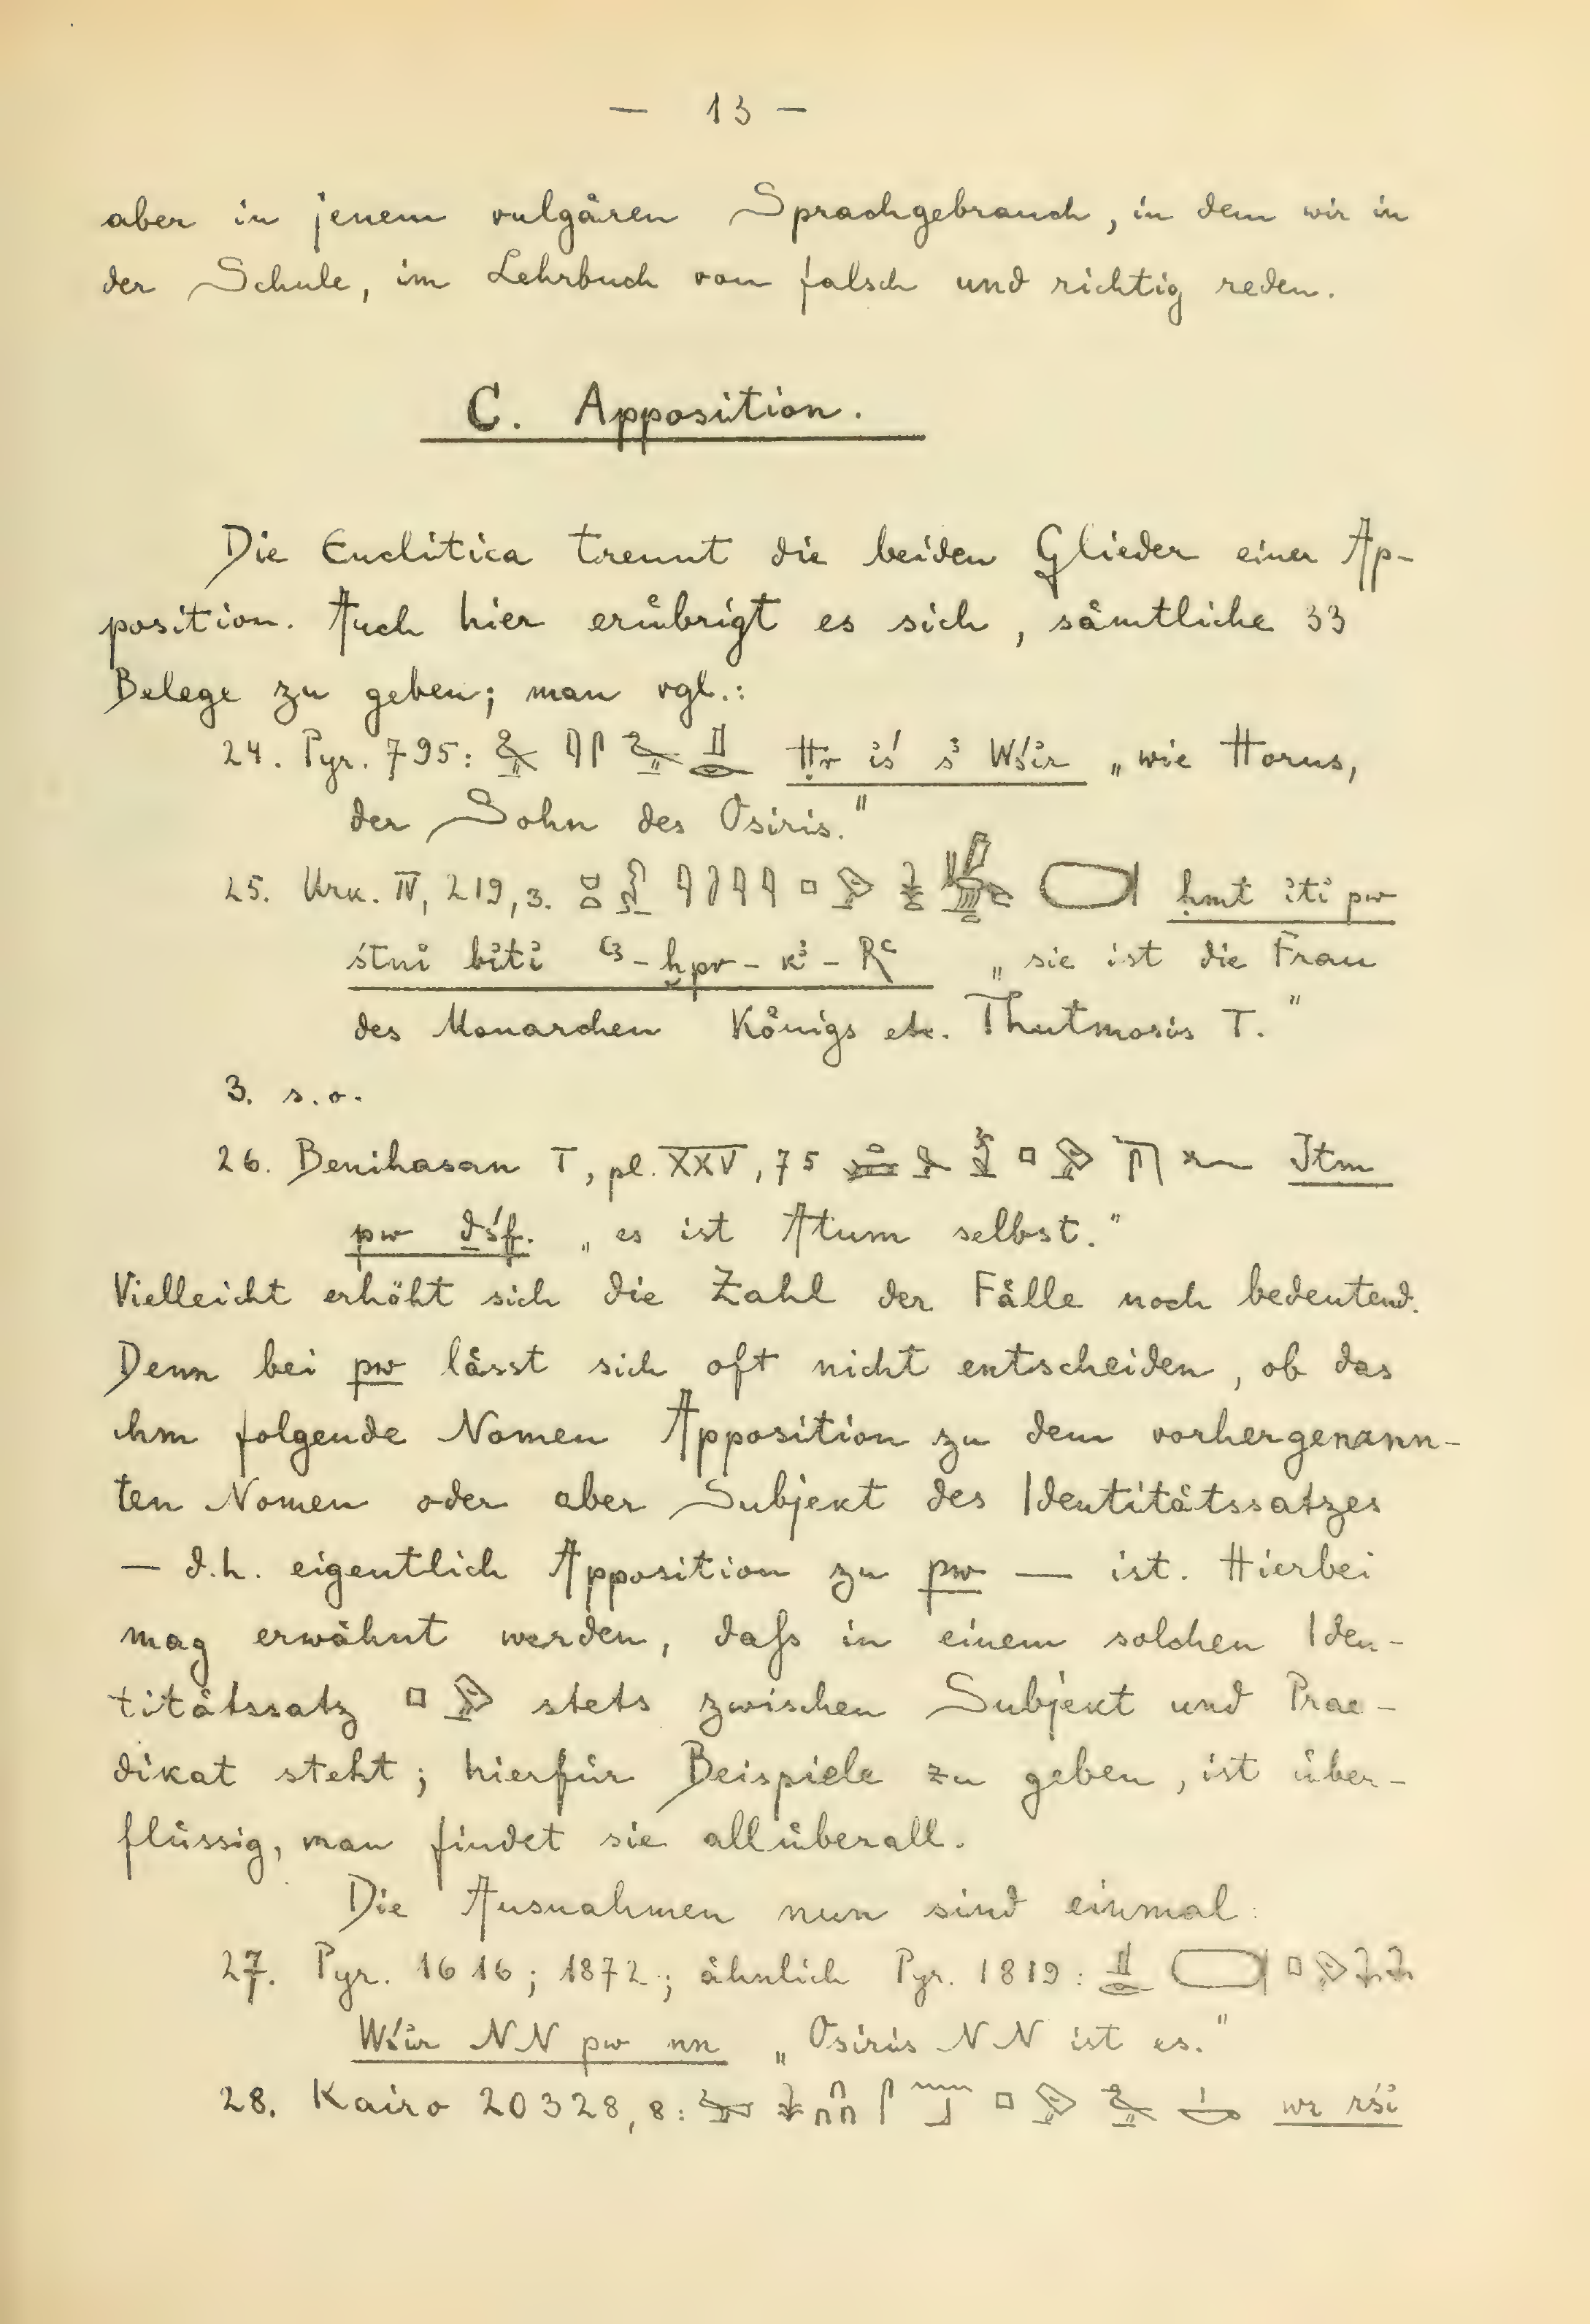 — 13 —
aber in jenem vulgären Sprachgebrauch, in dem wir in
der Schule, im Lehrbuch von falsch und richtig reden.
C. Apposition.
Die Enclitica trennt die beiden Glieder einer Ap-
position. Auch hier erübrigt es sich, sämtliche 33
Belege zu geben; man vgl.:
24. Pyr. 795: Ḥr iś sꜣ Wśir „wie Horus,
der Sohn des Osiris."
25. Urk. IV, 219, 3. ḥmt iti pw
śtni biti Ꜥꜣ-ḫpr-kꜣ-RꜤ „sie ist die Frau
des Monarchen Königs etc. Thutmosis I."
3. s.o.
26. Benihasan I, pl. XXV, 75 Itm
pw ḏśf. „es ist Atum selbst."
Vielleicht erhöht sich die Zahl der Fälle noch bedeutend.
Denn bei pw lässt sich oft nicht entscheiden, ob das
ihm folgende Nomen Apposition zu dem vorhergenann-
ten Nomen oder aber Subjekt des Identitätssatzes
— d.h. eigentlich Apposition zu pw — ist. Hierbei
mag erwähnt werden, daſs in einem solchen Iden-
titätssatz stets zwischen Subjekt und Prae-
dikat steht; hierfür Beispiele zu geben, ist über-
flüssig, man findet sie allüberall.
Die Ausnahmen nun sind einmal:
27. Pyr. 1616; 1872; ähnlich Pyr. 1819:
Wśir NN pw nn „Osiris NN ist es."
28. Kairo 20328, 8: wr rśi